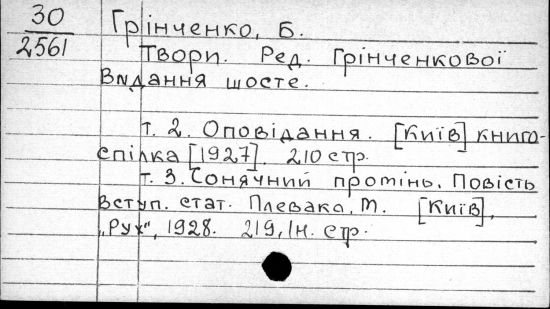 30
2561
Грінченко, Б.
Твори. Ред. Грінченкової
Видання шосте.
т. 2. Оповідання. [Київ] книго-
спілка [1927]. 210 стр.
т. 3. Сонячний промінь. Повість
Вступ. стат. Плевако, М. [Київ],
„Рух", 1928. 219, Ін. стр.